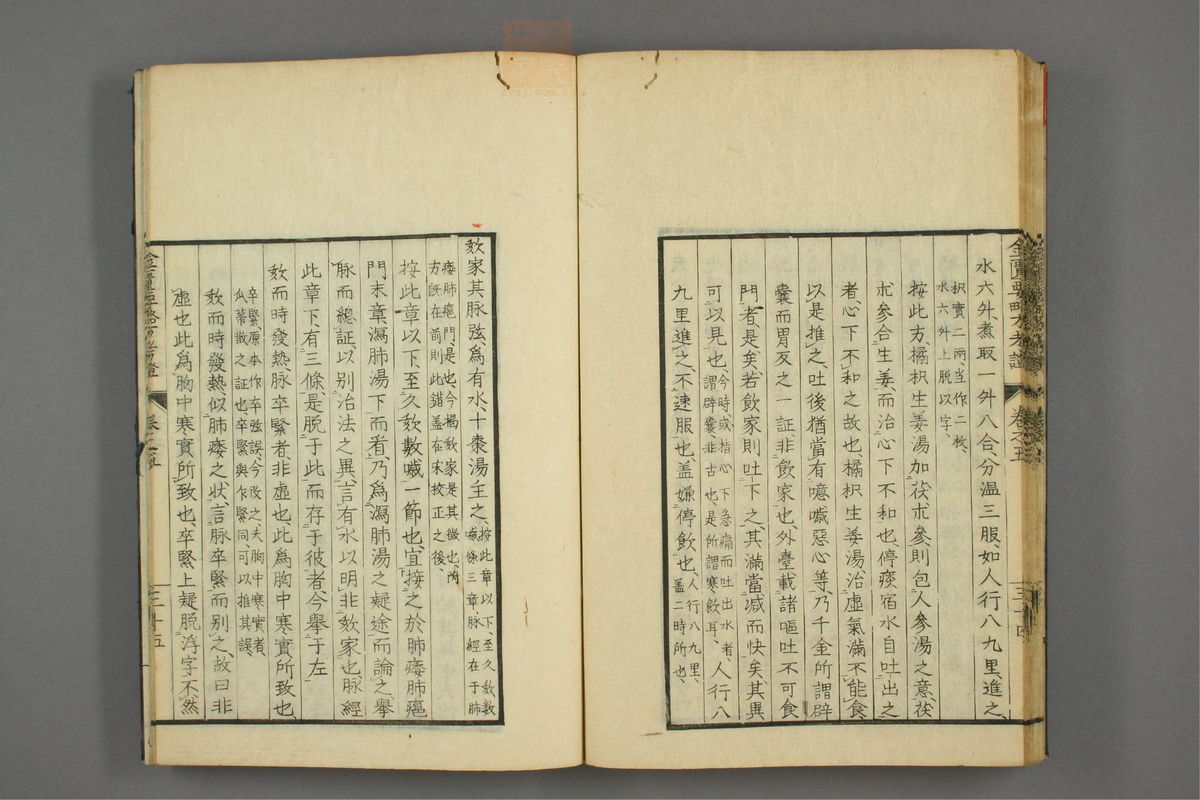 水六升、煮取一升八合、分温三服、如人行八九里進之、
枳實二兩当作二枚、
水六升上脱以字、
按此方、橘枳生姜湯加茯朮參則包人參湯之意茯
朮參合生姜而治心下不和也、停痰宿水自吐出之
者、心下不和之故也、橘枳生姜湯、治虛氣滿不能食、
以是推之、吐後猶當有噫噦惡心等、乃千金所謂辟
囊而胃反之一証、非飲家也、外臺載諸嘔吐不可食
門者、是矣、若飲家則吐下之、其滿當减而快矣、其異
可以見也、
今時、或指心下急痛而吐出水者、
謂辟囊、非古也、是所謂寒飲耳、
人行八
九里進之、不速服也、盖嫌停飲也、
人行八九里、
盖二時所也、
金匱要略方考證
卷之五
三十四
欬家其脉弦、爲有水、十棗湯主之、
按此章以下、至久欬數
噦條三章、脉經在于肺
痿肺癰門、是也、今揭欬家是其徴也、丙
方旣在前則此錯盖在宋校正之後、
按此章以下、至久欬數噦一節也、宜接之於肺痿肺癰
門末章、瀉肺湯、下而看、乃爲瀉肺湯之疑途而論之、舉
脉而總証、以别治法之異、言有水以明非欬家也、脉經
此章下、有三條、是脱于此而存于彼者、今舉于左
欬而時發熱、脉卒緊者、非虛也、此爲胸中寒實所致也、
卒緊原本作卒弦誤、今改之、夫胸中寒實者、
瓜蒂散之証也、卒緊與乍緊同可以推其誤、
欬而時發熱、似肺痿之狀、言脉卒緊而别之、故曰非
虛也、此爲胸中寒實所致也、卒緊上疑脱浮字、不然
金匱要略方考證
卷之五
三十五